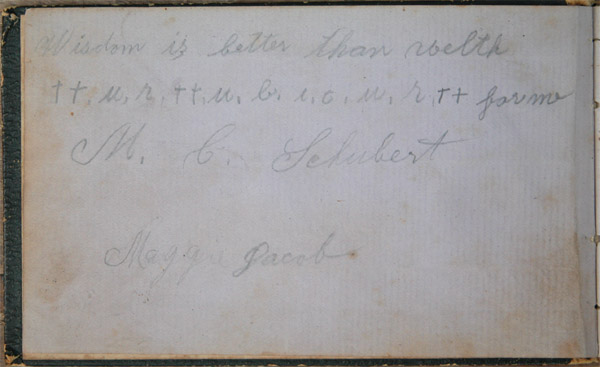 Wisdom is better than welth
††. u, r, ††, u, b, i, c, u, r, †† for me
M. C. Schubert
Maggie Jacob